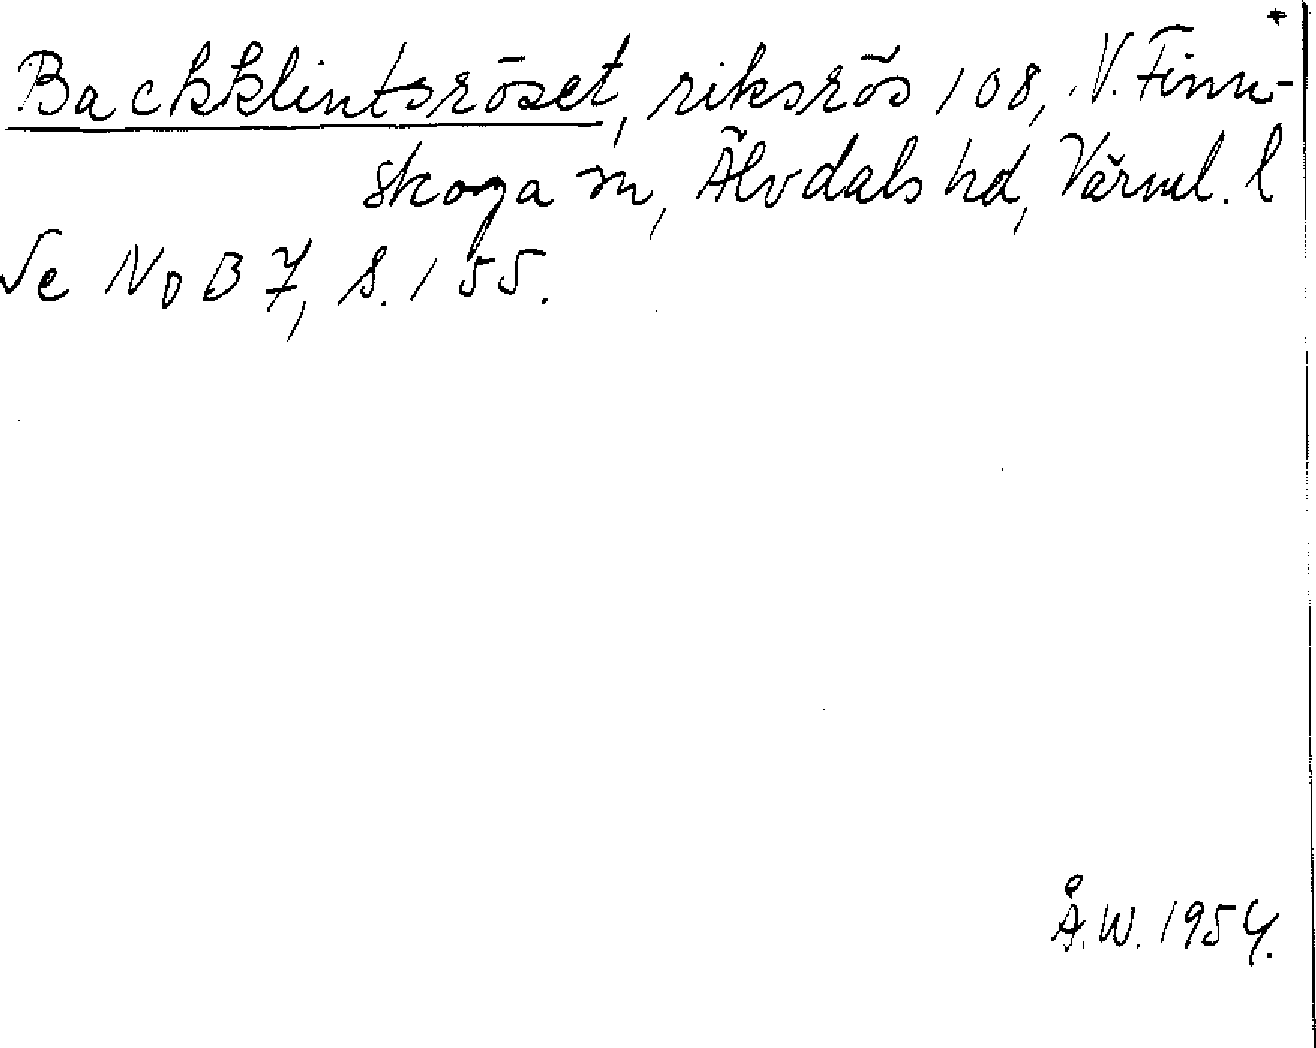 +
Backklintsröset, riksrös 108, N. Finn-
skoga sn, Älvdals hd, Värml. l
Se NoB 7, s. 155.
Å.W. 1954.